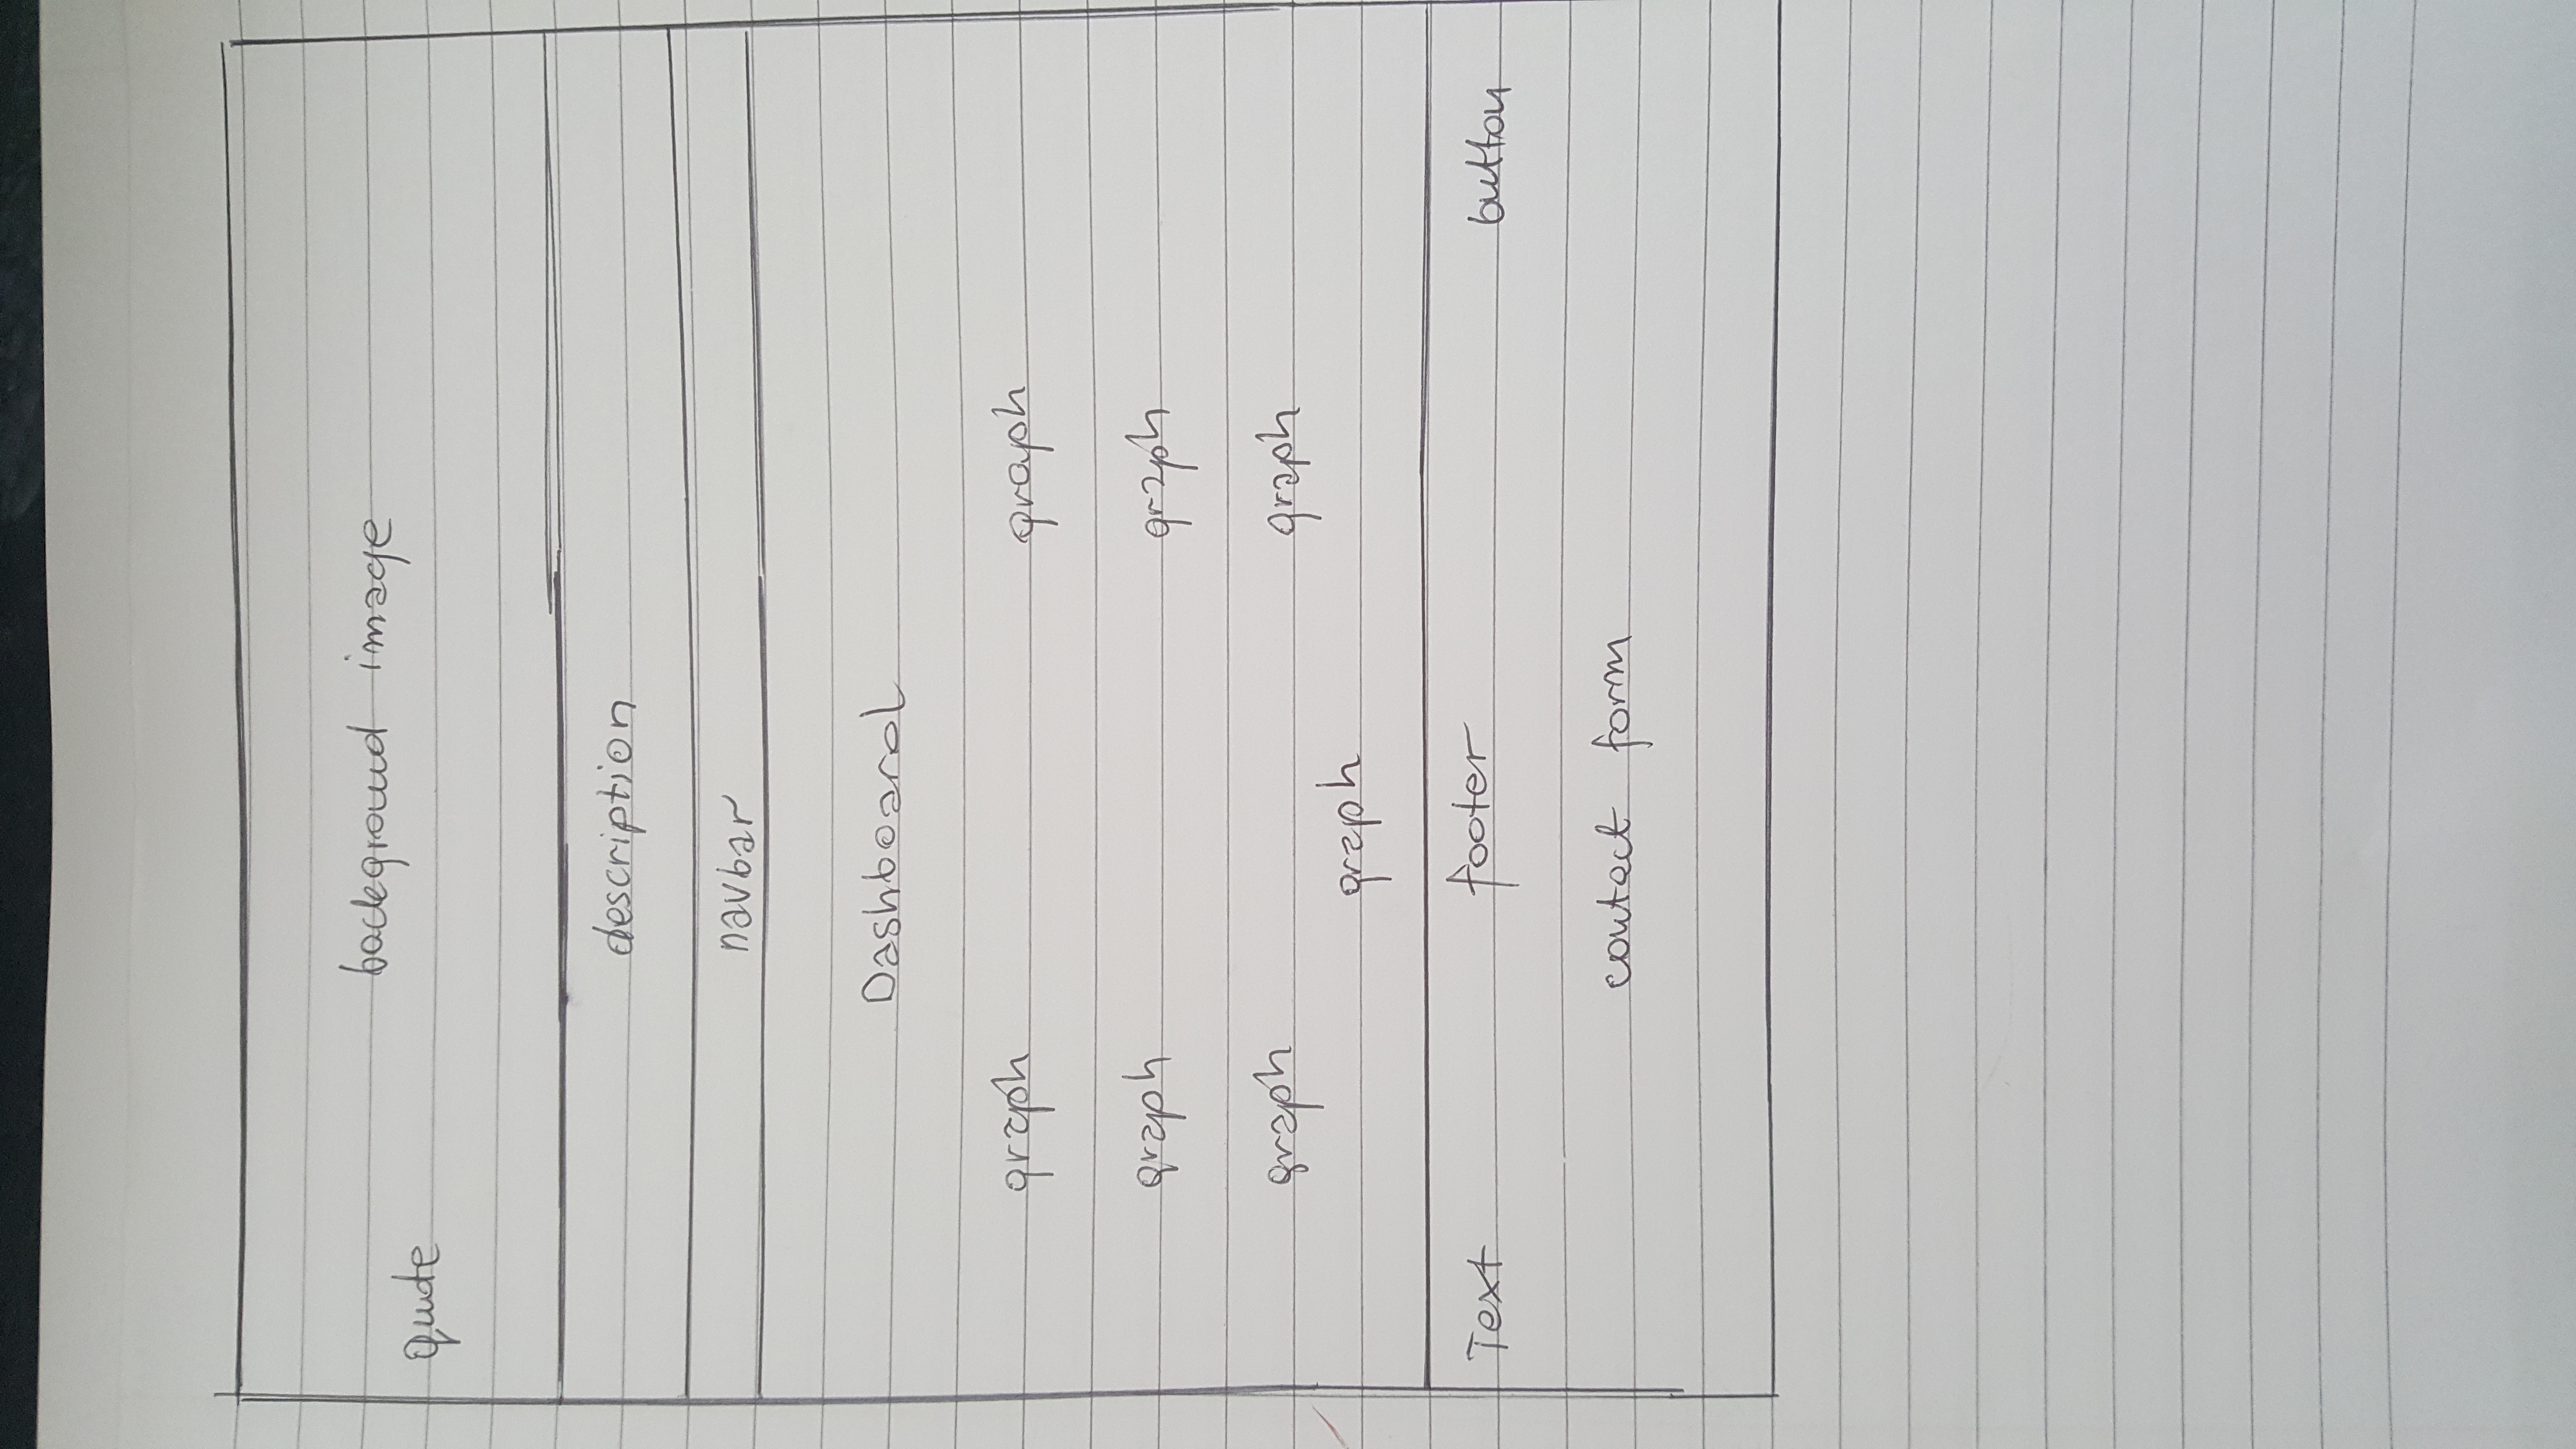 background image
quote
description
navbar
Dashboard
graph graph
graph graph
graph graph
graph
Text footer button
contact form